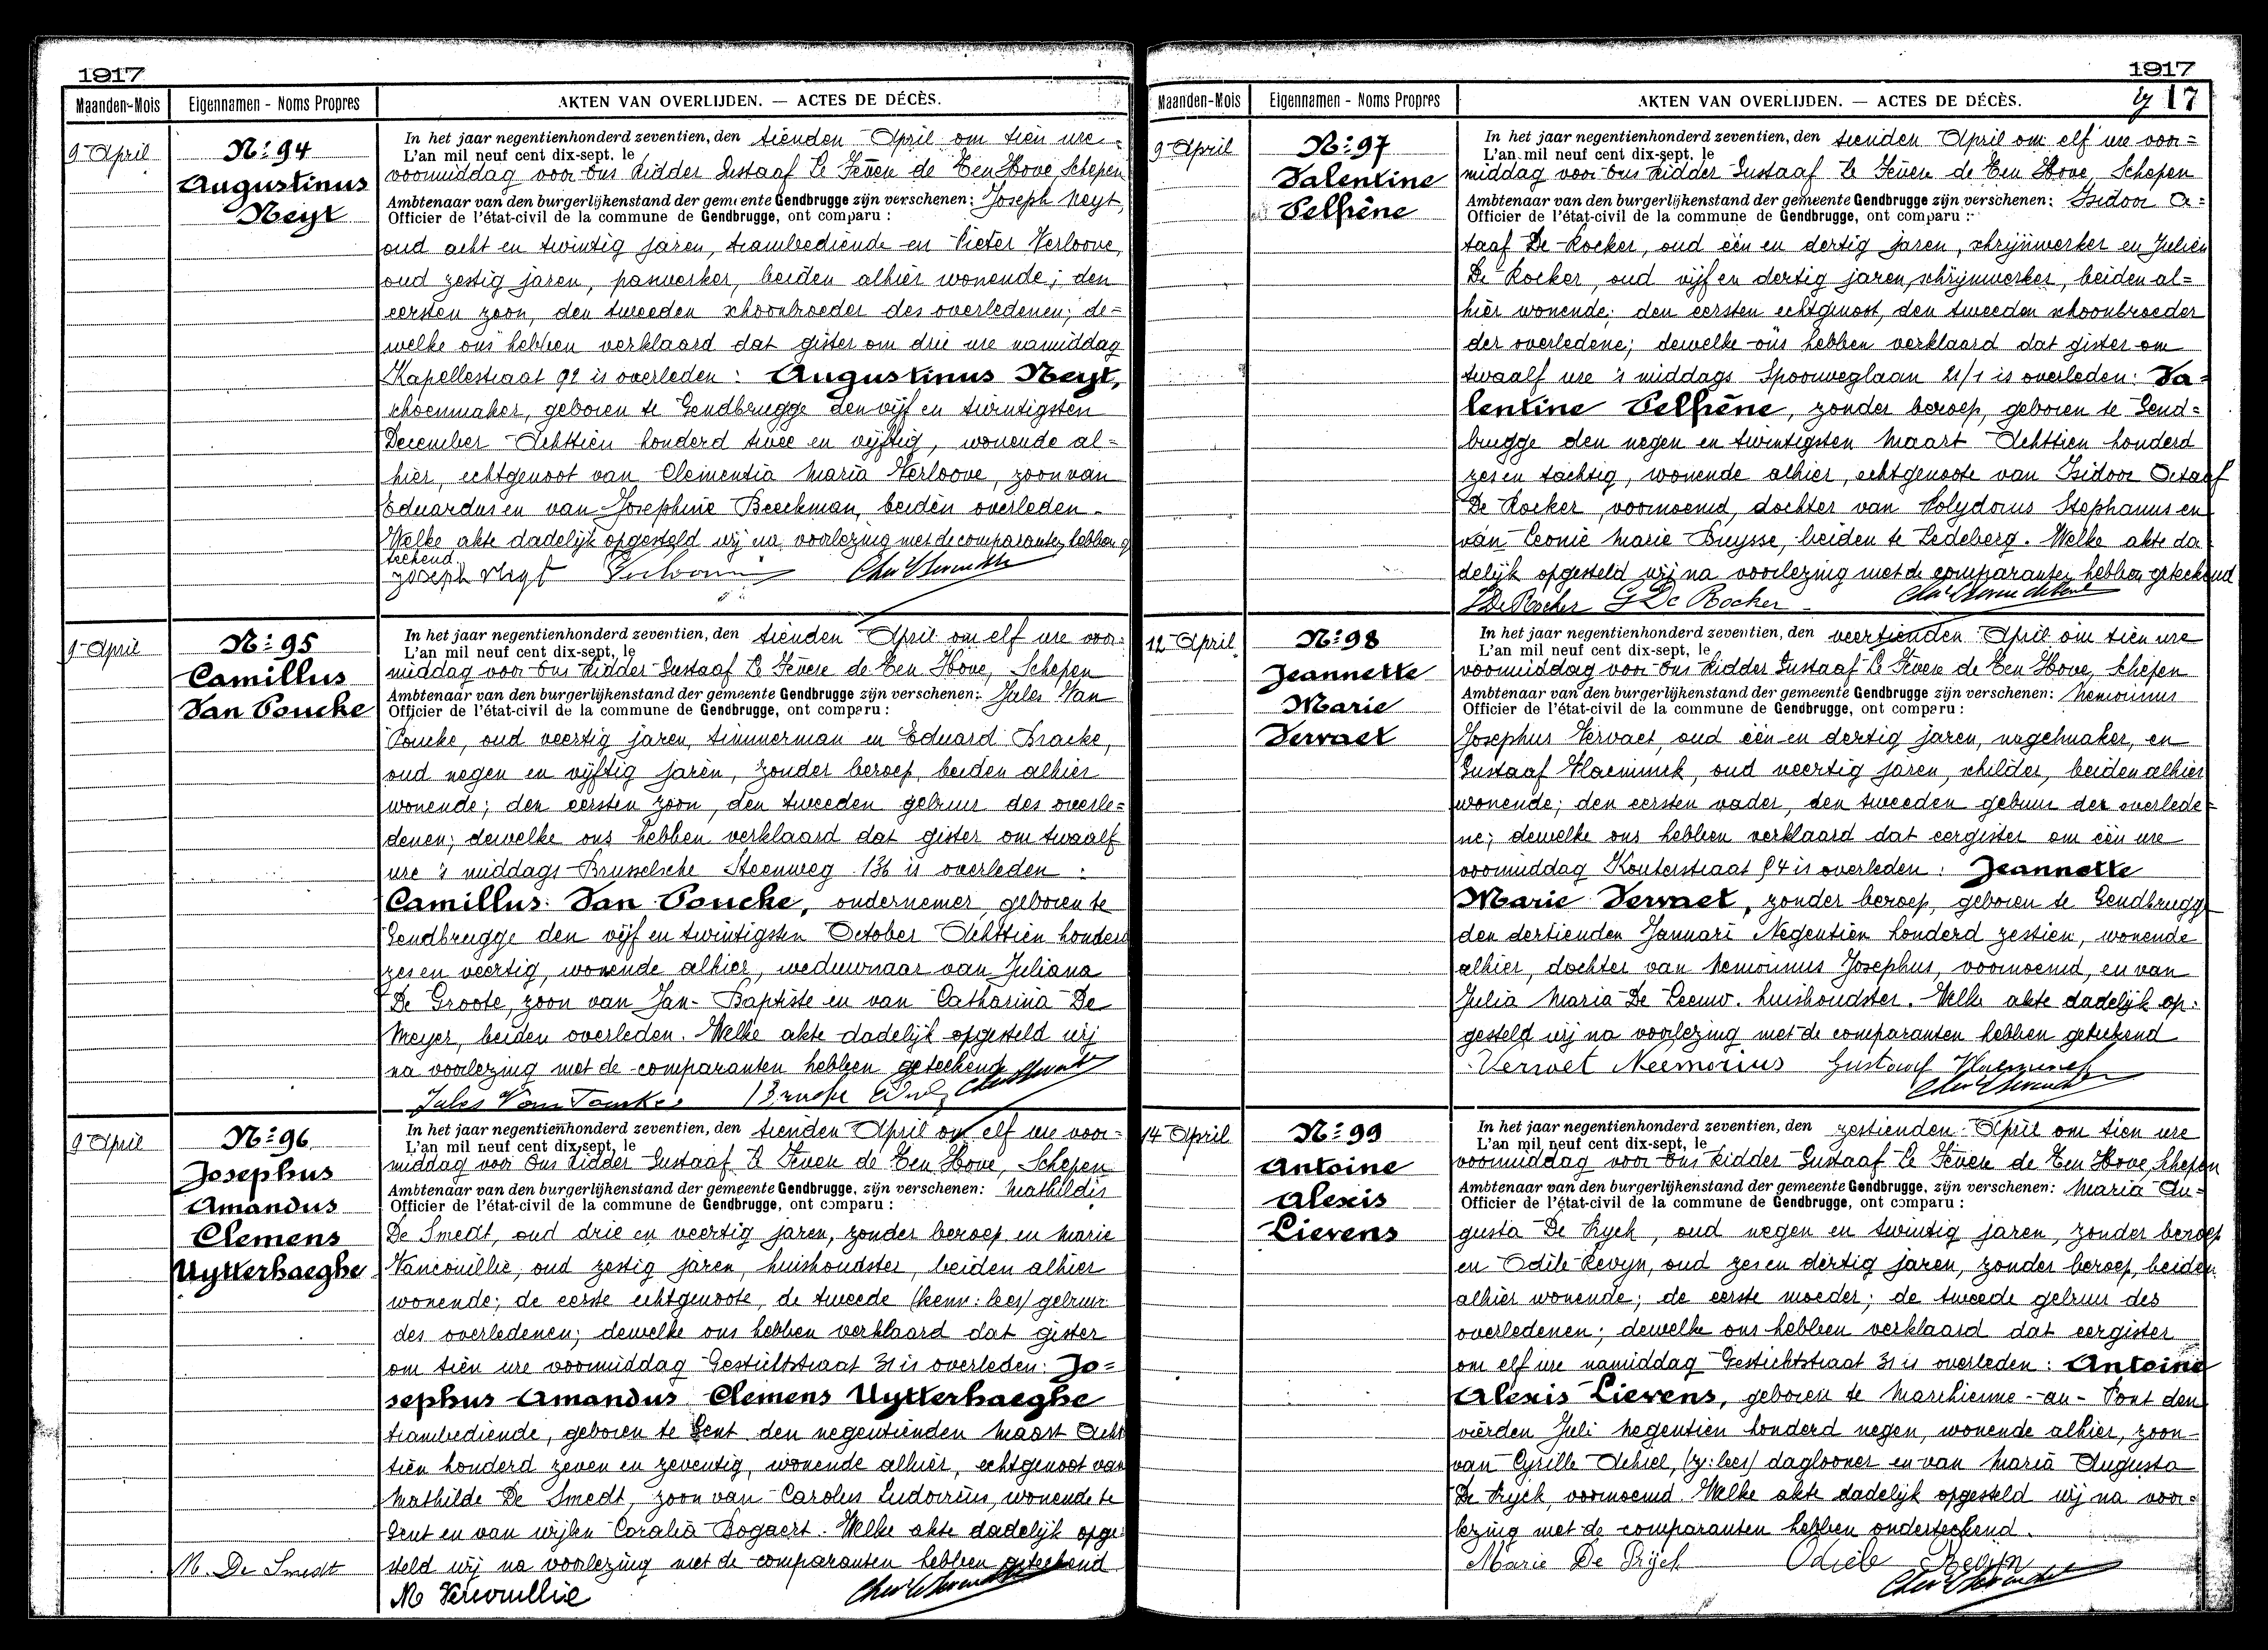 1917
Maanden-Mois
Eigennamen - Noms Propres
AKTEN VAN OVERLIJDEN. — ACTES DE DÉCÈS.
9 April
Nº 94
Augustinus
Neyt
In het jaar negentienhonderd zeventien, den tienden April om tien ure
L'an mil neuf cent dix-sept, le
voormiddag voor Ons Ridder Gustaaf Le Fèvere de Ten Hove Schepen
Ambtenaar van den burgerlijkenstand der gemeente Gendbrugge zijn verschenen: Joseph Neyt,
Officier de l'état-civil de la commune de Gendbrugge, ont comparu :
oud acht en twintig jaren, trambediende en Pieter Verloove,
oud zestig jaren, paswerker, beiden alhier wonende; den
eersten zoon, den tweeden schoonbroeder des overledenen; de=
welke ons hebben verklaard dat gister om drie ure namiddag
Kapellestraat 92 is overleden : Augustinus Neyt,
schoenmaker, geboren te Gendbrugge den vijf en twintigsten
December Achttien honderd twee en vijftig, wonende al=
hier, echtgenoot van Clementia Maria Verloove, zoon van
Eduardus en van Josephine Beeckman, beiden overleden.
Welke akte dadelijk opgesteld wij na voorlezing met de comparanten hebben ge
teekend
Joseph Neyt
9 April
Nº 95
Camillus
Van Poucke
In het jaar negentienhonderd zeventien, den tienden April om elf ure voor=
L'an mil neuf cent dix-sept, le
middag voor Ons Ridder Gustaaf Le Fèvere de Ten Hove, Schepen
Ambtenaar van den burgerlijkenstand der gemeente Gendbrugge zijn verschenen: Jules Van
Officier de l'état-civil de la commune de Gendbrugge, ont comparu :
Poucke, oud veertig jaren, timmerman en Eduard Bracke,
oud negen en vijftig jaren, zonder beroep, beiden alhier
wonende; den eersten zoon, den tweeden gebuur des overle=
denen; dewelke ons hebben verklaard dat gister om twaalf
ure 's middags Brusselsche Steenweg 136 is overleden :
Camillus Van Poucke, ondernemer, geboren te
Gendbrugge den vijf en twintigsten October Achttien honderd
zes en veertig, wonende alhier, weduwnaar van Juliana
De Groote, zoon van Jan-Baptiste en van Catharina De
Meyer, beiden overleden. Welke akte dadelijk opgesteld wij
na voorlezing met de comparanten hebben geteekend
Jules Van Poucke
9 April
Nº 96
Josephus
Amandus
Clemens
Uytterhaeghe
In het jaar negentienhonderd zeventien, den tienden April om elf ure voor=
L'an mil neuf cent dix-sept, le
middag voor Ons Ridder Gustaaf Le Fèvere de Ten Hove, Schepen
Ambtenaar van den burgerlijkenstand der gemeente Gendbrugge, zijn verschenen: Mathildis
Officier de l'état-civil de la commune de Gendbrugge, ont comparu :
De Smedt, oud drie en veertig jaren, zonder beroep en Marie
Vancouillie, oud zestig jaren, huishoudster, beiden alhier
wonende; de eerste echtgenoote, de tweede gebuur
des overledenen; dewelke ons hebben verklaard dat gister
om tien ure voormiddag Gestichtstraat 31 is overleden: Jo=
sephus Amandus Clemens Uytterhaeghe
trambediende, geboren te Gent den negentienden Maart Acht
tien honderd zeven en zeventig, wonende alhier, echtgenoot van
Mathilde De Smedt, zoon van Carolus Ludovicus, wonende te
Gent en van wijlen Coralia Bogaert. Welke akte dadelijk opge
steld wij na voorlezing met de comparanten hebben geteekend
M. De Smedt
1917
17
Maanden-Mois
Eigennamen - Noms Propres
AKTEN VAN OVERLIJDEN. — ACTES DE DÉCÈS.
9 April
Nº 97
Valentine
Pelfrêne
In het jaar negentienhonderd zeventien, den tienden April om elf ure voor=
L'an mil neuf cent dix-sept, le
middag voor Ons Ridder Gustaaf Le Fèvere de Ten Hove, Schepen
Ambtenaar van den burgerlijkenstand der gemeente Gendbrugge zijn verschenen: Isidoor Oc=
Officier de l'état-civil de la commune de Gendbrugge, ont comparu :
taaf De Rocker, oud één en dertig jaren, schrijnwerker en Julien
De Rocker, oud vijf en dertig jaren, schrijnwerker, beiden al=
hier wonende; den eersten echtgenoot, den tweeden schoonbroeder
der overledene; dewelke ons hebben verklaard dat gister om
twaalf ure 's middags Spoorweglaan 21/1 is overleden: Va=
lentine Pelfrêne, zonder beroep, geboren te Gend=
brugge den negen en twintigsten Maart Achttien honderd
zes en tachtig, wonende alhier, echtgenoote van Isidoor Octaaf
De Rocker, voornoemd, dochter van Polydorus Stephanus en
van Leonie Marie Buysse, beiden te Ledeberg. Welke akte da
delijk opgesteld wij na voorlezing met de comparanten hebben geteekend
De Rocker De Rocker
12 April
Nº 98
Jeannette
Marie
Vervaet
In het jaar negentienhonderd zeventien, den veertienden April om tien ure
L'an mil neuf cent dix-sept, le
voormiddag voor Ons Ridder Gustaaf Le Fèvere de Ten Hove, Schepen
Ambtenaar van den burgerlijkenstand der gemeente Gendbrugge zijn verschenen: Nemorinus
Officier de l'état-civil de la commune de Gendbrugge, ont comparu :
Josephus Vervaet, oud één en dertig jaren, nagelmaker, en
Gustaaf Vlaeminck, oud veertig jaren, schilder, beiden alhier
wonende; den eersten vader, den tweeden gebuur der overlede=
ne; dewelke ons hebben verklaard dat eergister om één ure
voormiddag Kouterstraat 94 is overleden : Jeannette
Marie Vervaet, zonder beroep, geboren te Gendbrugge
den dertienden Januari Negentien honderd zestien, wonende
alhier, dochter van Nemorinus Josephus, voornoemd, en van
Julia Maria De Leeuw, huishoudster. Welke akte dadelijk op=
gesteld wij na voorlezing met de comparanten hebben geteekend
Vervaet Neemorius Gustaaf Vlaeminck
14 April
Nº 99
Antoine
Alexis
Lievens
In het jaar negentienhonderd zeventien, den zestienden April om tien ure
L'an mil neuf cent dix-sept, le
voormiddag voor Ons Ridder Gustaaf Le Fèvere de Ten Hove, Schepen
Ambtenaar van den burgerlijkenstand der gemeente Gendbrugge, zijn verschenen: Maria Au=
Officier de l'état-civil de la commune de Gendbrugge, ont comparu :
gusta De Ryck, oud negen en twintig jaren, zonder beroep
en Odile Revyn, oud zes en dertig jaren, zonder beroep, beiden
alhier wonende; de eerste moeder; de tweede gebuur des
overledenen; dewelke ons hebben verklaard dat eergister
om elf ure namiddag Gestichtstraat 31 is overleden : Antoine
Alexis Lievens, geboren te Marchienne-au-Pont den
vierden Juli Negentien honderd negen, wonende alhier, zoon
van Cyrille daglooner en van Maria Augusta
De Ryck, voornoemd. Welke akte dadelijk opgesteld wij na voor=
lezing met de comparanten hebben onderteekend.
Marie De Rijck Odiele Revijn